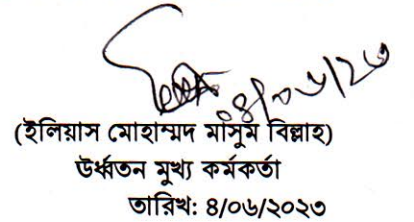 ০৪/০৬/২৩
(ইলিয়াস মোহাম্মদ মাসুম বিল্লাহ)
উর্ধ্বতন মুখ্য কর্মকর্তা
তারিখ: ৪/০৬/২০২৩